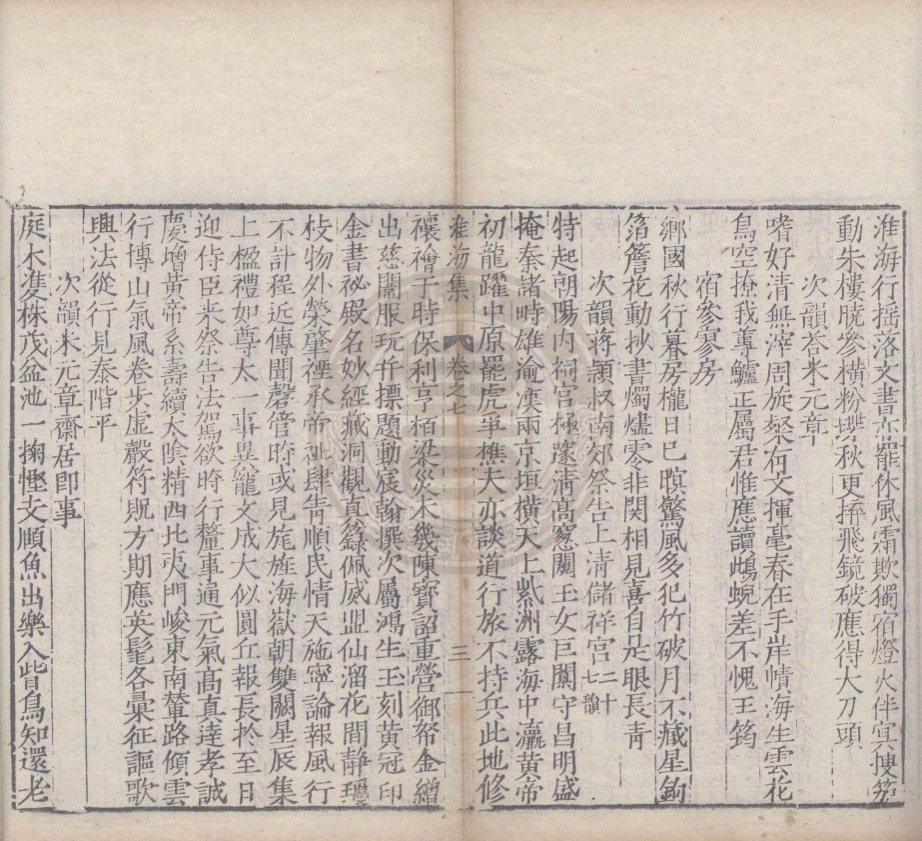 淮海行揺落文書亦罷休風霜欺獨宿燈火伴冥搜笳
動朱樓曉參横粉堞秋更拚飛鏡破應得大刀頭
次韻荅米元章
嗜好清無滓周旋粲有文揮毫春在手岸幘海生雲花
鳥空撩我蓴鱸正屬君惟應讀鴟蜺差不愧王筠
宿參寥房
郷國秋行暮房櫳日已暝驚風多犯竹破月不藏星鉤
箔簷花動抄書燭燼零非關相見喜自是眼長青
次韻蔣頴叔南郊祭告上清儲祥宫二十七韻
特起朝陽内祠官極邃清高窓闚玉女巨闕守昌明盛
掩秦諸畤雄渝漢兩京垣横天上紫洲露海中瀛黄帝
初龍躍中原罷虎争樵夫亦談道行旅不持兵此地修
淮海集 卷之七 三
禳禬于時保利亨栢梁災木幾陳寶詔重營御帑金繒
出慈闈服玩并摽題動宸翰撰次屬鴻生玉刻黄冠印
金書祕殿名妙經藏洞觀真籙佩威盟仙溜花間静瓊
枝物外榮肇禋承帝祉肆眚順民情天施寧論報風行
不計程近傳聞磬管時或見旄旌海嶽朝雙闕星辰集
上楹禮如尊太一事異寵文成大似圓丘報長於至日
迎侍臣来祭告法駕欲時行釐事通元氣高真達孝誠
慶增黄帝系壽續太陰精西北夷門峻東南輦路傾雲
行博山氣風卷步虚聲符貺方期應英髦各彚征謳歌
興法從行見泰階平
次韻米元章齋居即事
庭木雙株茂盆池一掬慳文順魚出樂入晢鳥知還老